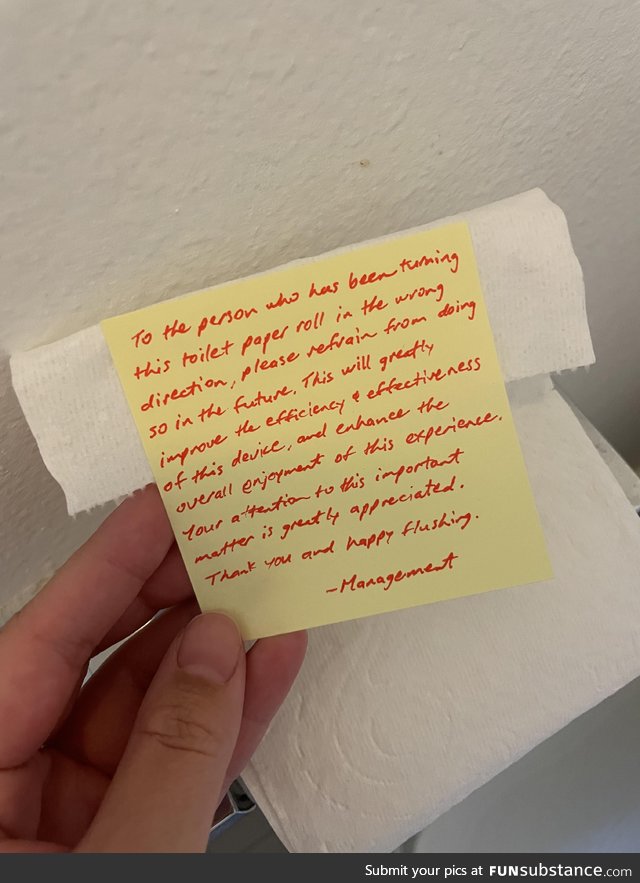 To the person who has been turning
this toilet paper roll in the wrong
direction, please refrain from doing
so in the future. This will greatly
improve the efficiency & effectiveness
of this device, and enhance the
overall enjoyment of this experience.
Your attention to this important
matter is greatly appreciated.
Thank you and happy flushing.
-Management
Submit your pics at FUNsubstance.com